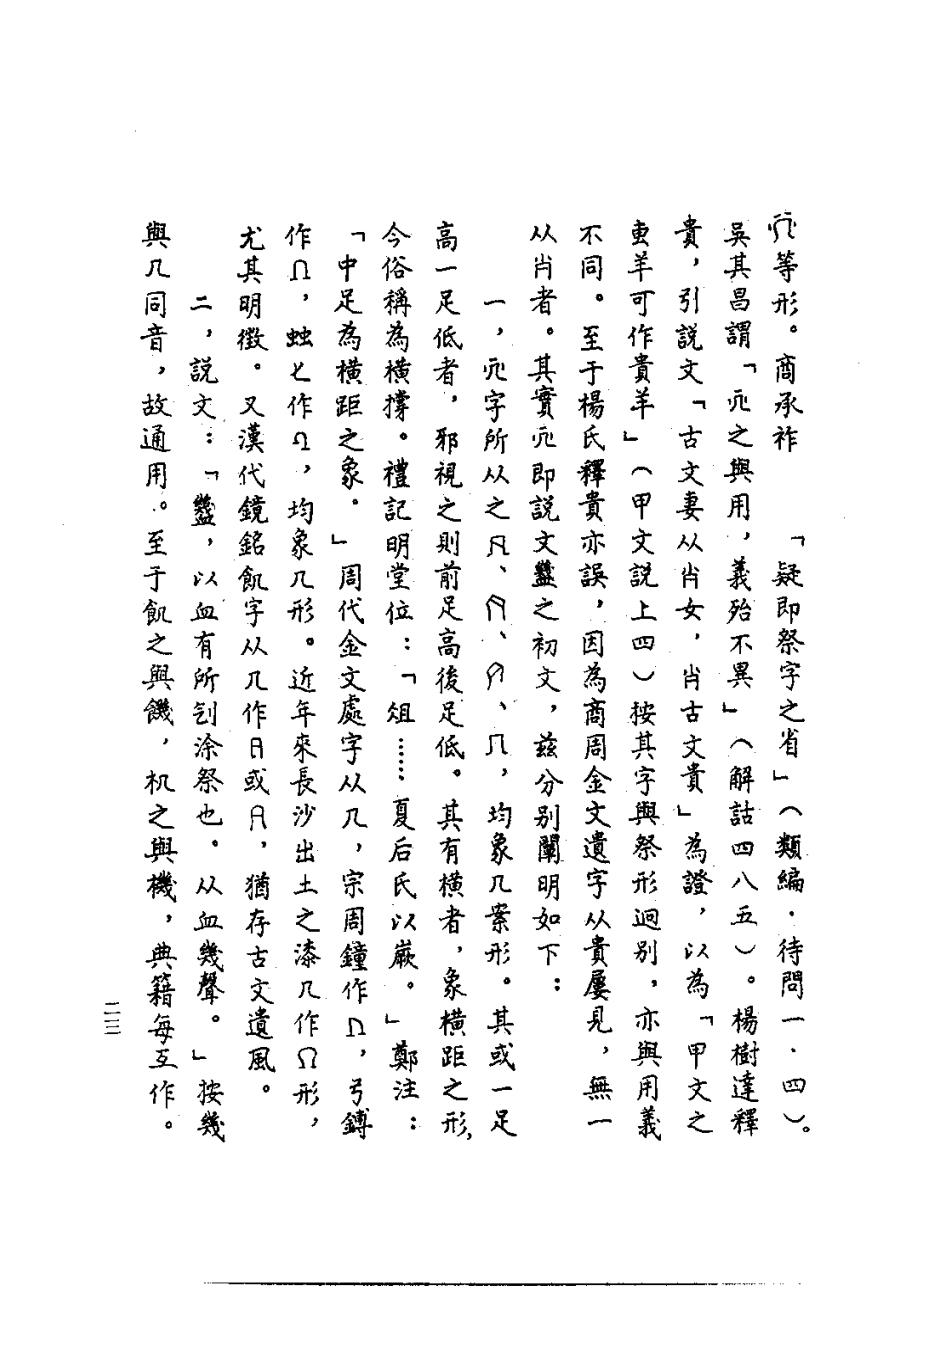 等形。商承祚　「疑即祭字之省」（類編·待問一·四）。
吳其昌謂「𠨘之與用，義殆不異」（解詁四八五）。楊樹達釋
貴，引說文「古文妻从𡴆女，𡴆古文貴」為證，以為「甲文之
叀羊可作貴羊」（甲文說上四）按其字與祭形迥別，亦與用義
不同。至于楊氏釋貴亦誤，因為商周金文遺字从貴屢見，無一
从𡴆者。其實即說文𧗒之初文，茲分別闡明如下：
一，字所从之、、、，均象几案形。其或一足
高一足低者，邪視之則前足高後足低。其有橫者，象橫距之形，
今俗稱為橫撐。禮記明堂位：「俎……夏后氏以嶡。」鄭注：
「中足為橫距之象。」周代金文處字从几，宗周鐘作，弓鎛
作，蚳匕作，均象几形。近年來長沙出土之漆几作形，
尤其明徵。又漢代鏡銘飢字从几作或，猶存古文遺風。
二，說文：「𧗒，以血有所刉涂祭也。从血幾聲。」按幾
與几同音，故通用。至于飢之與饑，机之與機，典籍每互作。
二三